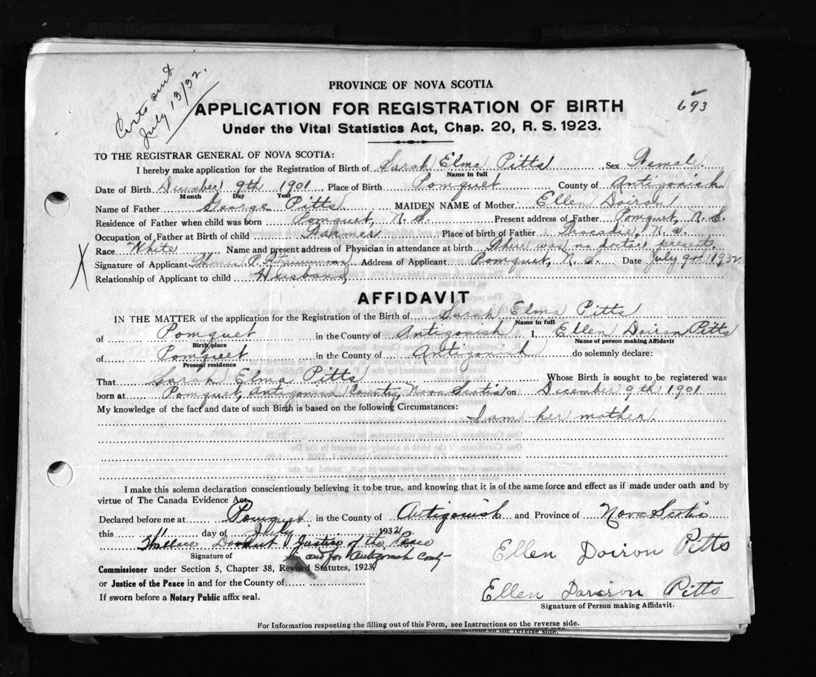 Certs sent
July 13/32.
693
PROVINCE OF NOVA SCOTIA
APPLICATION FOR REGISTRATION OF BIRTH
Under the Vital Statistics Act, Chap. 20, R. S. 1923.
TO THE REGISTRAR GENERAL OF NOVA SCOTIA:
I hereby make application for the Registration of Birth of Sarah Elma Pitts Sex Female.
Name in full
Date of Birth December 9th 1901 Place of Birth Pomquet County of Antigonish
Month Day Year
Name of Father George Pitts MAIDEN NAME of Mother Ellen Doiron
Residence of Father when child was born Pomquet, N. S. Present address of Father Pomquet, N. S.
Occupation of Father at Birth of child Farmer Place of birth of Father Tracadie, N. S.
Race White Name and present address of Physician in attendance at birth There was no doctor present.
Signature of Applicant Thomas P. Address of Applicant Pomquet, N. S. Date July 9th 1932
Relationship of Applicant to child Husband
X
AFFIDAVIT
IN THE MATTER of the application for the Registration of the Birth of Sarah Elma Pitts
Name in full
of Pomquet in the County of Antigonish, I, Ellen Doiron Pitts
Birth place Name of person making Affidavit
of Pomquet in the County of Antigonish do solemnly declare:
Present residence
That Sarah Elma Pitts Whose Birth is sought to be registered was
born at Pomquet, Antigonish County, Nova Scotia on December 9th 1901
My knowledge of the fact and date of such Birth is based on the following Circumstances:
I am her mother.
I make this solemn declaration conscientiously believing it to be true, and knowing that it is of the same force and effect as if made under oath and by
virtue of The Canada Evidence Act.
Declared before me at Pomquet in the County of Antigonish and Province of Nova Scotia
this 11 day of July 1932
Justice of the Peace
Signature of in and for Antigonish County
Commissioner under Section 5, Chapter 38, Revised Statutes, 1923
or Justice of the Peace in and for the County of
If sworn before a Notary Public affix seal.
Ellen Doiron Pitts
Ellen Doiron Pitts
Signature of Person making Affidavit.
For Information respecting the filling out of this Form, see Instructions on the reverse side.